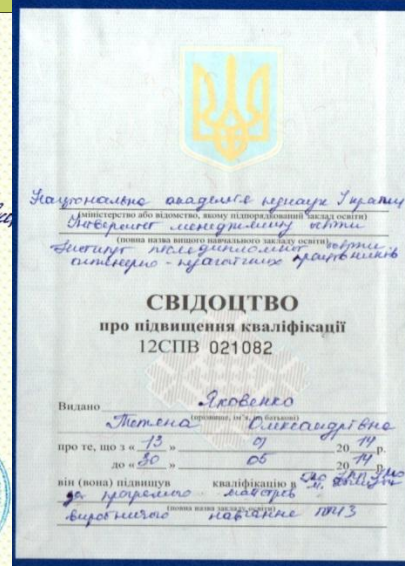 Національна академія педнаук України
(міністерство або відомство, якому підпорядкований заклад освіти)
Університет менеджменту освіти
(повна назва вищого навчального закладу освіти)
Інститут післядипломної освіти
інженерно-педагогічних працівників
СВІДОЦТВО
про підвищення кваліфікації
12СПВ 021082
Видано Яковенко
(прізвище, ім'я, по батькові)
Тетяна Олександрівна
про те, що з « 13 » 01 20 14 р.
до « 30 » 05 20 14 р.
він (вона) підвищув кваліфікацію в
за програмою майстрів
(повна назва закладу освіти)
виробничого навчання ПТНЗ